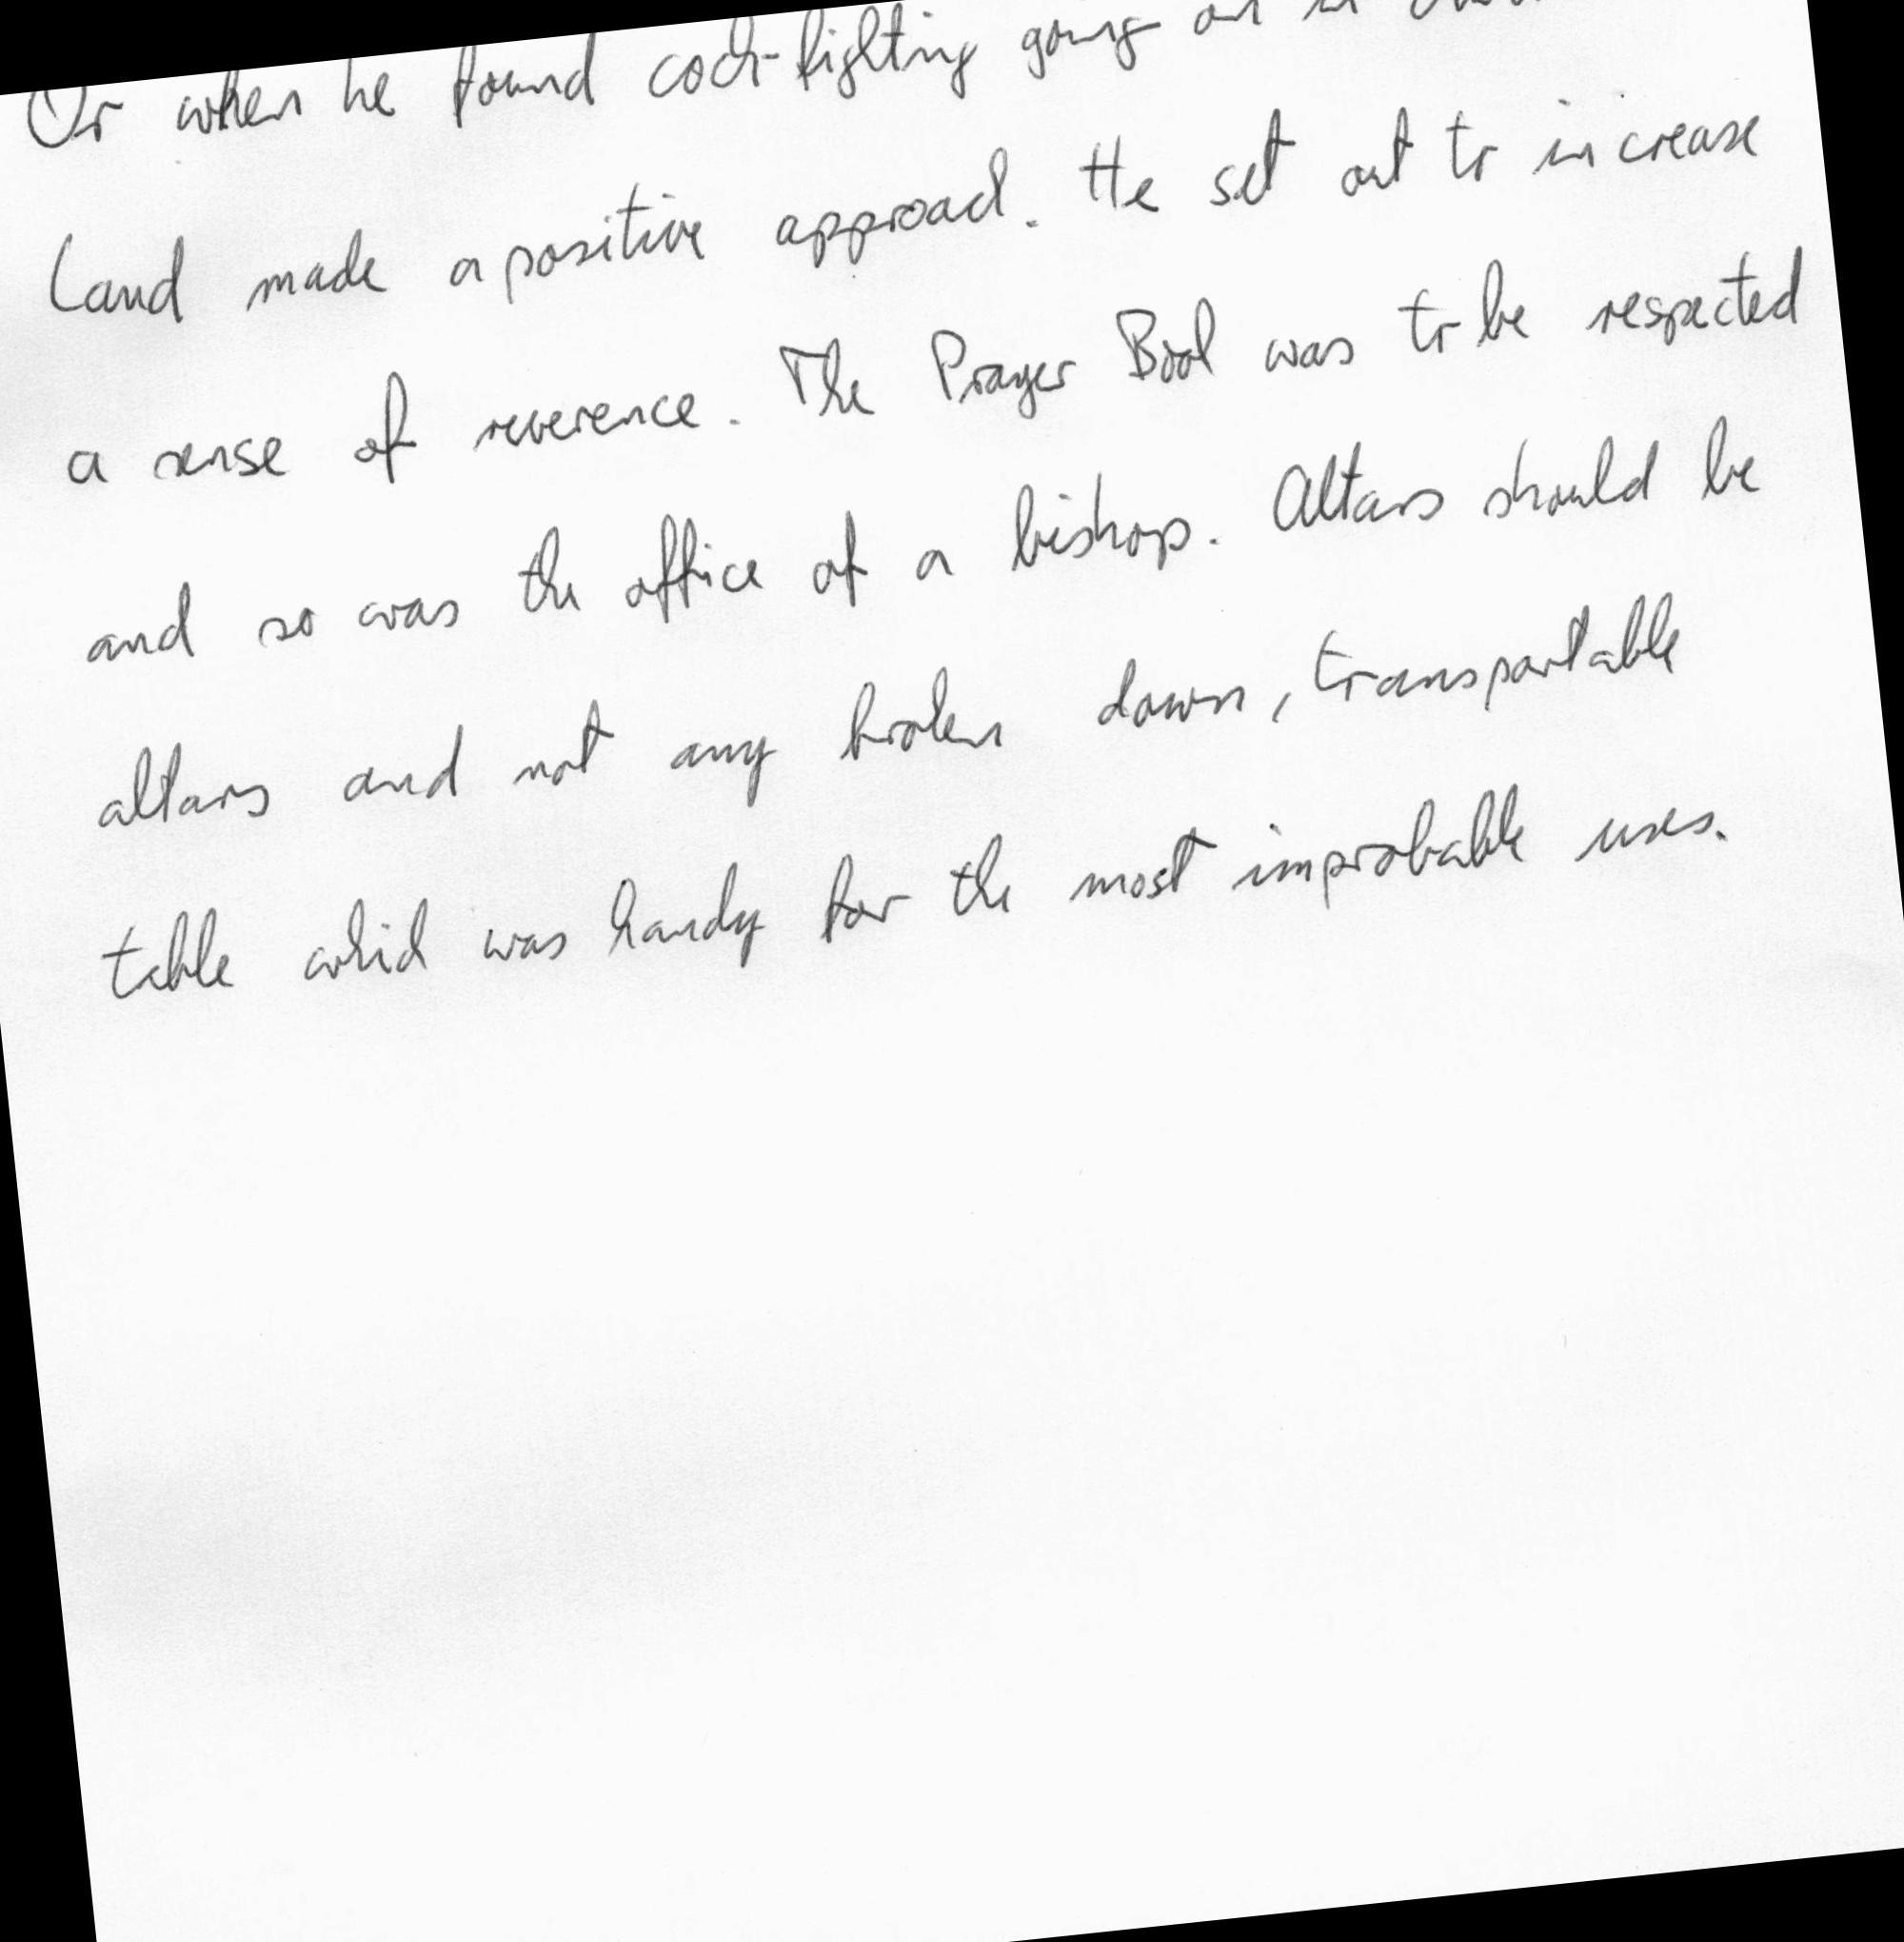 Or when he found cock-fighting going on in
Laud made a positive approach. He set out to increase
a sense of reverence. The Prayer Book was to be respected
and so was the office of a bishop. Altars should be
altars and not any broken down, transportable
table which was handy for the most improbable uses.